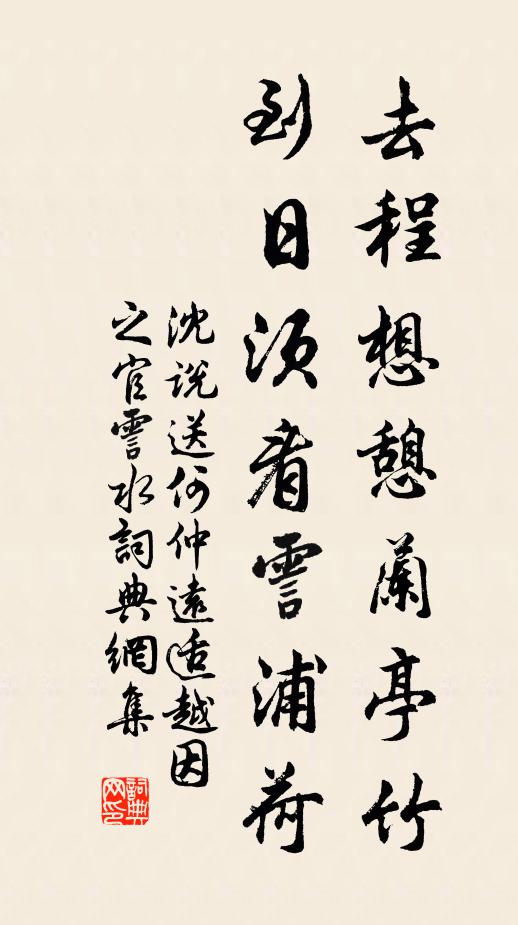 去程想憩蘭亭竹
到日須看霅浦荷
沈說送何仲遠适越因
之官霅水詞典網集
詞典網印